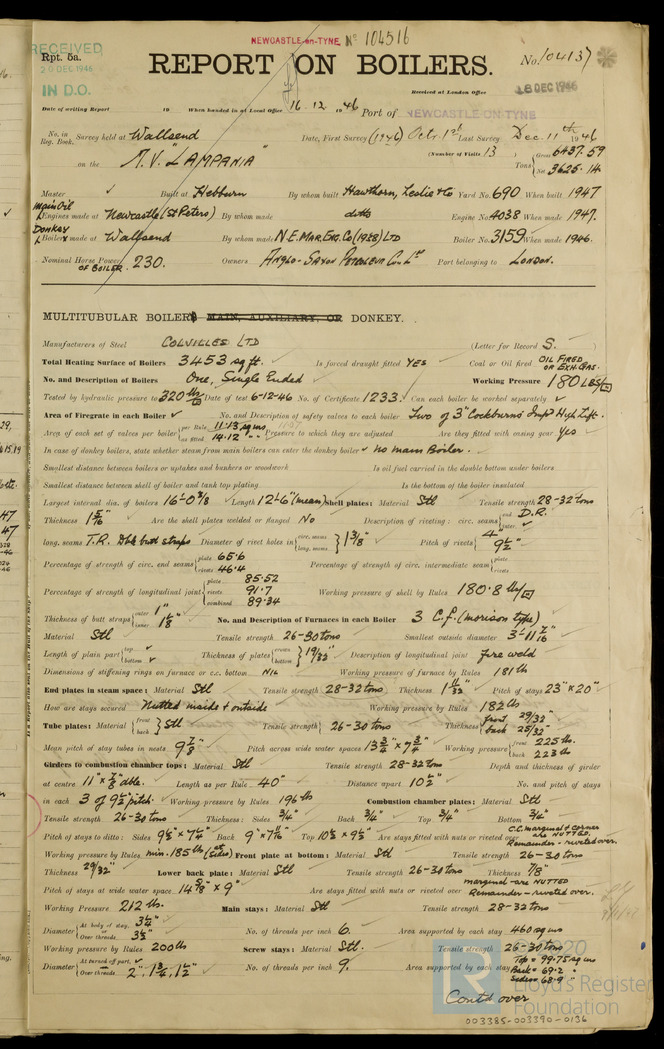 NEWCASTLE-on-TYNE No 104516
RECEIVED
20 DEC 1946
IN D.O.
Rpt. 5a.
REPORT ON BOILERS.
No. 104137
Received at London Office
18 DEC 1946
Date of writing Report 19 When handed in at Local Office 16.12.1946 Port of NEWCASTLE-ON-TYNE
No. in Reg. Book. Survey held at Wallsend Date, First Survey (1946) Octr. 1st Last Survey Dec. 11th 1946
(Number of Visits 13)
on the M.V. "LAMPANIA" Tons Gross 6437.59 Net 3625.14
Master Built at Hebburn By whom built Hawthorn, Leslie & Co Yard No. 690 When built 1947
Main Oil Engines made at Newcastle (St Peters) By whom made ditto Engine No. 4038 When made 1947.
Donkey Boiler made at Wallsend By whom made N.E. Mar. Eng. Co (1938) LTD Boiler No. 3159 When made 1946.
Nominal Horse Power OF BOILER 230. Owners Anglo-Saxon Petroleum Co. Ltd Port belonging to LONDON.
MULTITUBULAR BOILER MAIN, AUXILIARY, OR DONKEY.
Manufacturers of Steel COLVILLES LTD (Letter for Record S.)
Total Heating Surface of Boilers 3453 sq ft. Is forced draught fitted YES Coal or Oil fired OIL FIRED OR EXH. GAS.
No. and Description of Boilers One, Single Ended Working Pressure 180 LBS/□"
Tested by hydraulic pressure to 320 lb/□" Date of test 6-12-46 No. of Certificate 1233. Can each boiler be worked separately ✓
Area of Firegrate in each Boiler ✓ No. and Description of safety valves to each boiler Two of 3" Cockburns' Impd High Lift.
Area of each set of valves per boiler per Rule 11.13 sq ins as fitted 14.12 " " Pressure to which they are adjusted Are they fitted with easing gear Yes
In case of donkey boilers, state whether steam from main boilers can enter the donkey boiler ✓ no main Boiler.
Smallest distance between boilers or uptakes and bunkers or woodwork Is oil fuel carried in the double bottom under boilers
Smallest distance between shell of boiler and tank top plating Is the bottom of the boiler insulated
Largest internal dia. of boilers 16'-0 3/8" Length 12'-6" (mean) Shell plates: Material Stl Tensile strength 28-32 tons
Thickness 1 5/16" Are the shell plates welded or flanged No Description of riveting: circ. seams end D.R. inter. ✓
long. seams T.R. Dble butt straps Diameter of rivet holes in circ. seams long. seams 1 3/8" Pitch of rivets 4" 9 1/2"
Percentage of strength of circ. end seams plate 65.6 rivets 46.4 Percentage of strength of circ. intermediate seam plate rivets
Percentage of strength of longitudinal joint plate 85.52 rivets 91.7 combined 89.34 Working pressure of shell by Rules 180.8 lbs/□"
Thickness of butt straps outer 1" inner 1 1/8" No. and Description of Furnaces in each Boiler 3 C.f. (morison type)
Material Stl Tensile strength 26-30 tons Smallest outside diameter 3'-11 7/16"
Length of plain part top bottom Thickness of plates crown bottom 19/32" Description of longitudinal joint fire weld
Dimensions of stiffening rings on furnace or c.c. bottom NIL Working pressure of furnace by Rules 181 lb
End plates in steam space: Material Stl Tensile strength 28-32 tons Thickness 1 11/32" Pitch of stays 23" x 20"
How are stays secured Nutted inside & outside Working pressure by Rules 182 lb
Tube plates: Material front back Stl Tensile strength 26-30 tons Thickness front 29/32" back 25/32"
Mean pitch of stay tubes in nests 9 7/8" Pitch across wide water spaces 13 3/4" x 7 3/4" Working pressure front 225 lbs. back 223 lb
Girders to combustion chamber tops: Material Stl Tensile strength 28-32 tons Depth and thickness of girder
at centre 11" x 7/8" dble. Length as per Rule 40" Distance apart 10 1/2" No. and pitch of stays
in each 3 of 9 1/2" pitch. Working pressure by Rules 196 lb Combustion chamber plates: Material Stl
Tensile strength 26-30 tons Thickness: Sides 3/4" Back 3/4" Top 3/4" Bottom 3/4"
Pitch of stays to ditto: Sides 9 1/2" x 7 1/4" Back 9" x 7 1/4" Top 10 1/2" x 9 1/2" Are stays fitted with nuts or riveted over C.C. marginal & corner are NUTTED. Remainder - riveted over.
Working pressure by Rules min. 185 lb (at sides) Front plate at bottom: Material Stl Tensile strength 26-30 tons
Thickness 29/32" Lower back plate: Material Stl Tensile strength 26-30 tons Thickness 7/8"
Pitch of stays at wide water space 14 5/8" x 9" Are stays fitted with nuts or riveted over marginal are NUTTED Remainder - riveted over.
Working Pressure 212 lb. Main stays: Material Stl Tensile strength 28-32 tons
Diameter At body of stay, 3 1/4" Over threads 3 1/2" No. of threads per inch 6. Area supported by each stay 460 sq ins
Working pressure by Rules 200 lb Screw stays: Material Stl. Tensile strength 26-30 tons
Diameter At turned off part, ✓ Over threads 2", 1 3/4", 1 1/2" No. of threads per inch 9. Area supported by each stay Top = 99.75 sq ins Back = 69.2 " Sides = 68.9 "
Contd over
2020
Lloyd's Register
Foundation
003385-003390-0136